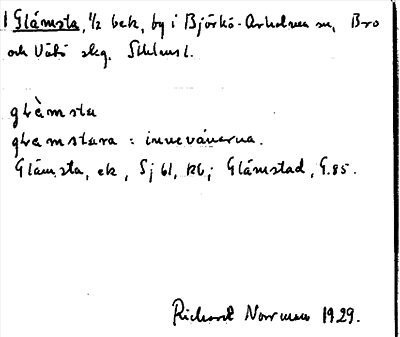 Glámsta, 1/2 bek, by i Björkö-Arholma sn, Bro
och Vätö skg. Sthlms l.
glàmsta
glamstara = innevånarna.
Glámsta, ek, Sj 61, Kb; Glámstad, G. 85.
Richard Norrman 1929.